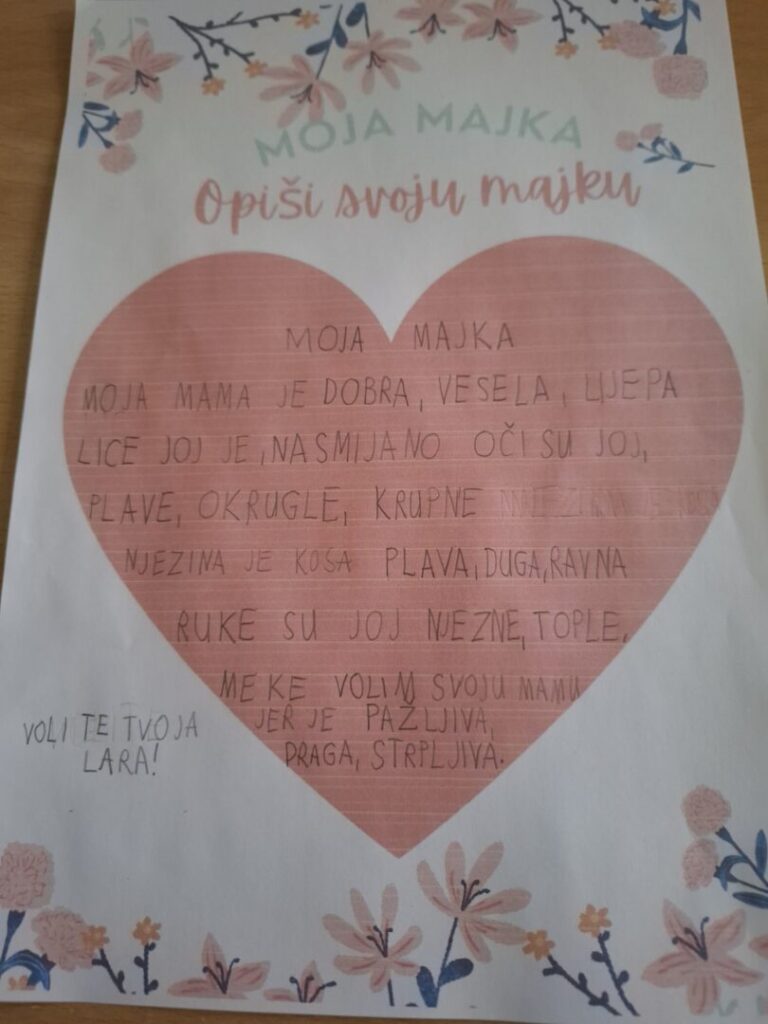 MOJA MAJKA
Opiši svoju majku
MOJA MAJKA
MOJA MAMA JE DOBRA, VESELA, LIJEPA
LICE JOJ JE, NASMIJANO OČI SU JOJ,
PLAVE, OKRUGLE, KRUPNE
NJEZINA JE KOSA PLAVA, DUGA, RAVNA
RUKE SU JOJ NJEZNE, TOPLE,
MEKE VOLIM SVOJU MAMU
JER JE PAŽLJIVA,
DRAGA, STRPLJIVA.
VOLI TE TVOJA
LARA!